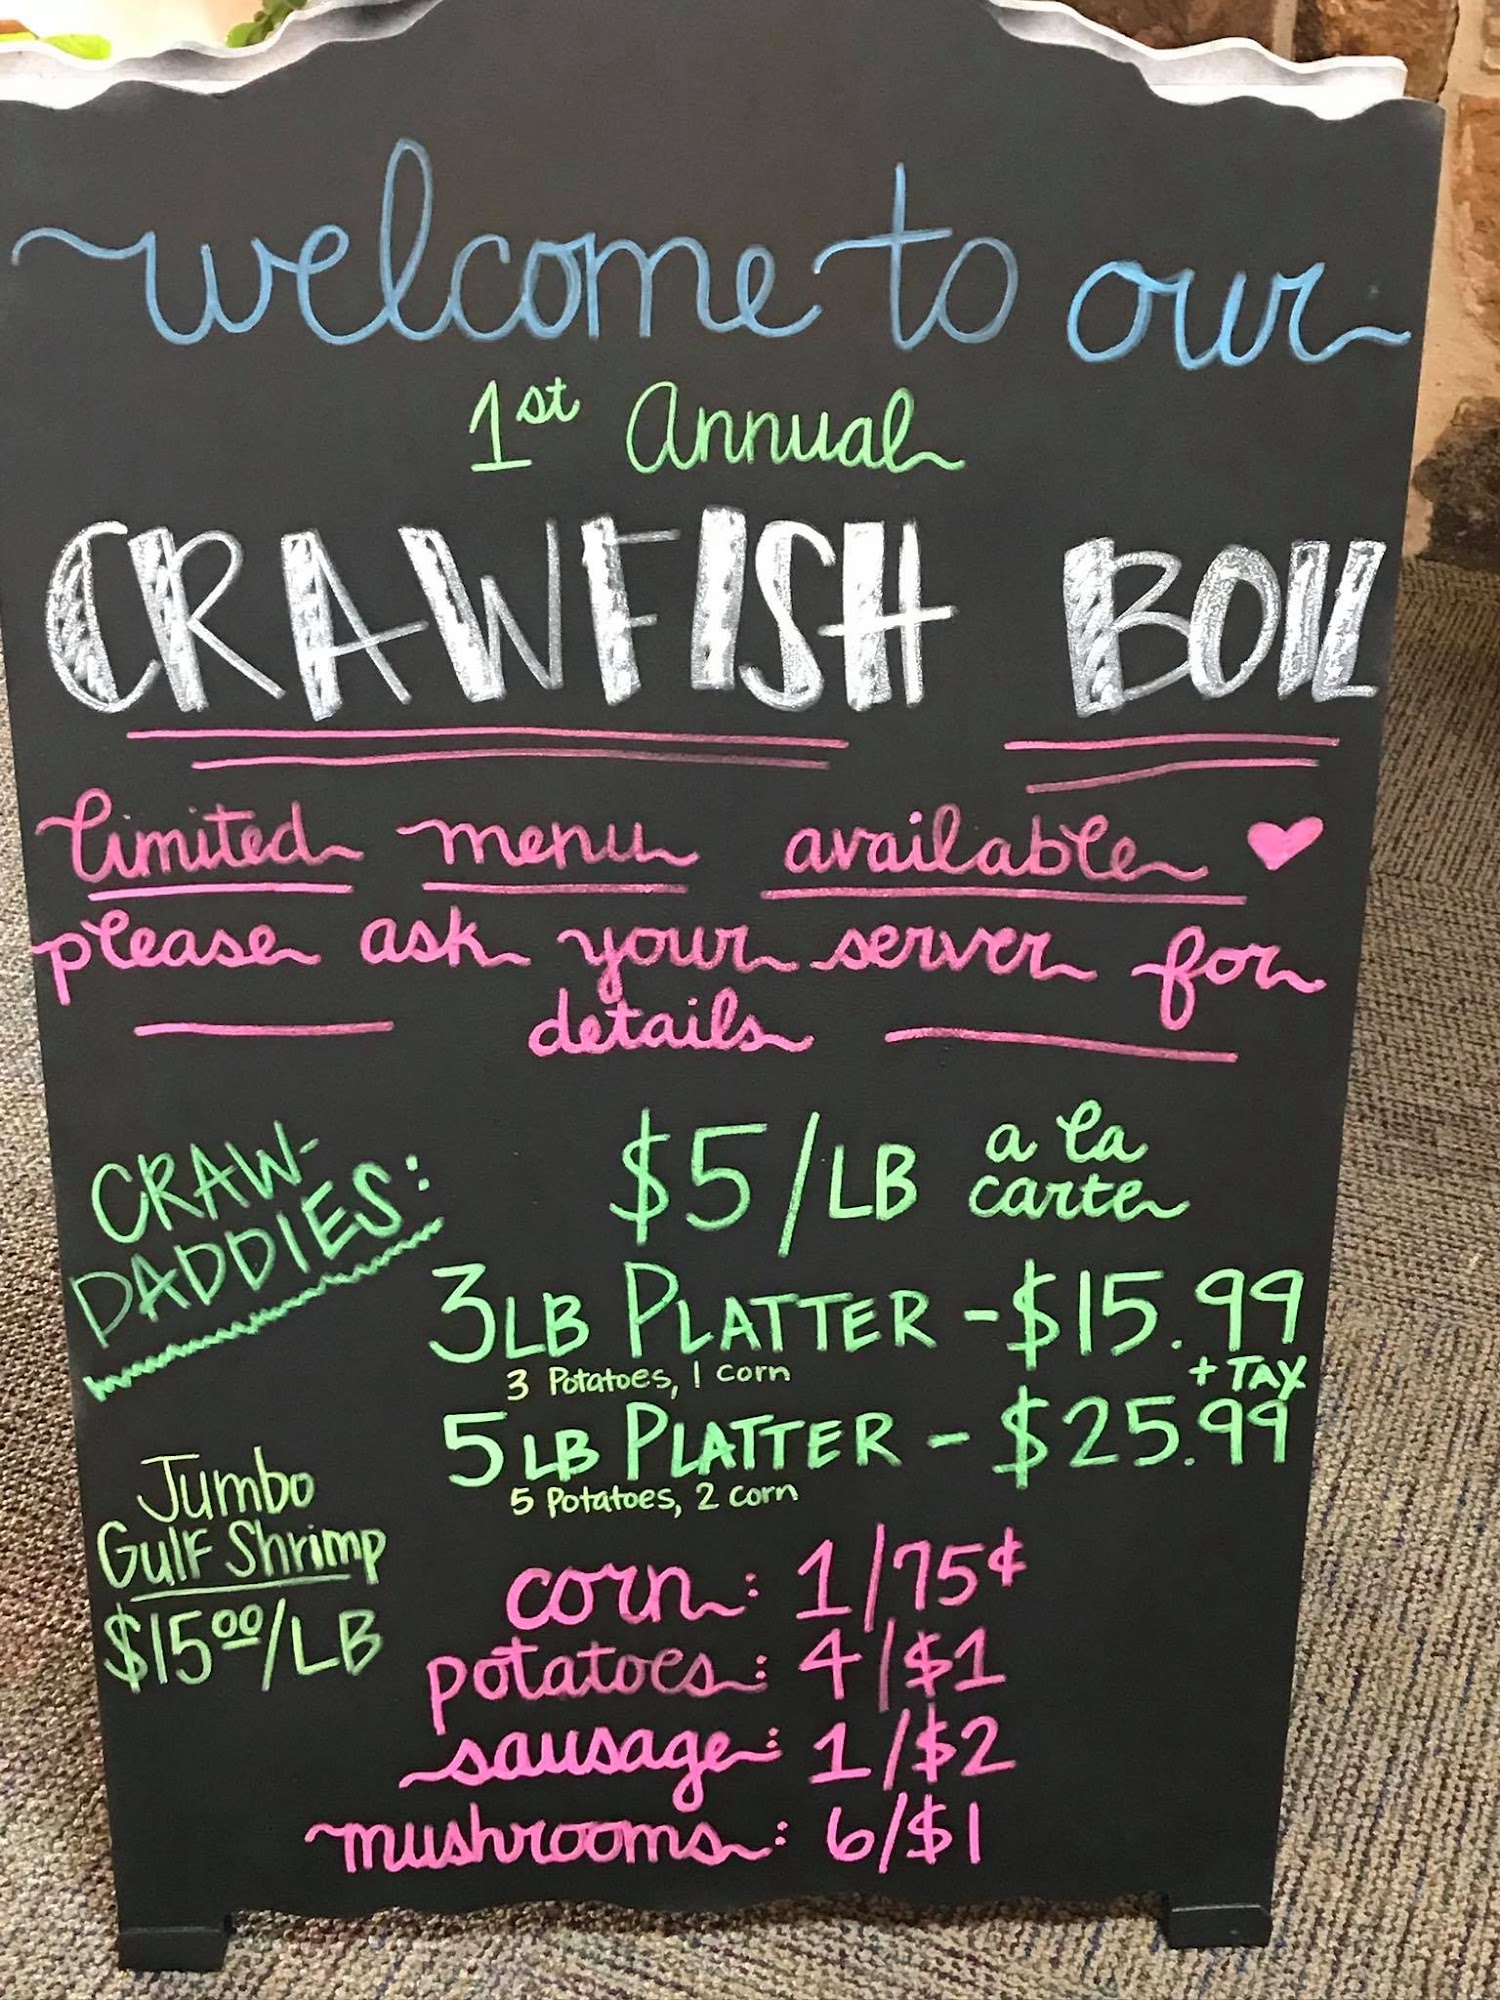 welcome to our
1st Annual
CRAWFISH BOIL
limited menu available ♥
please ask your server for
details
CRAW-
DADDIES:
$5/LB a la
carte
3LB PLATTER - $15.99
+ TAX
3 Potatoes, 1 corn
5 LB PLATTER - $25.99
5 Potatoes, 2 corn
Jumbo
Gulf Shrimp
$15.00/LB
corn: 1/75¢
potatoes: 4/$1
sausage: 1/$2
mushrooms: 6/$1